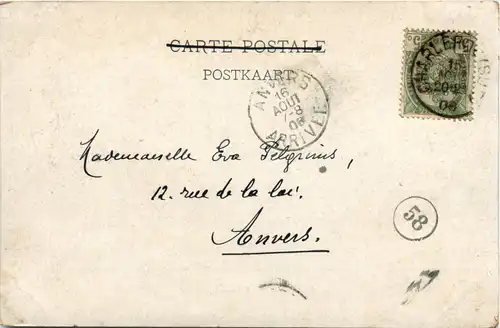 CARTE POSTALE
POSTKAART
ANVERS
16
AOUT
7-8
06
ARRIVÉE
CHARLEROI
15
06
Mademoiselle Eva Pelgrims,
12. rue de la loi.
Anvers.
58